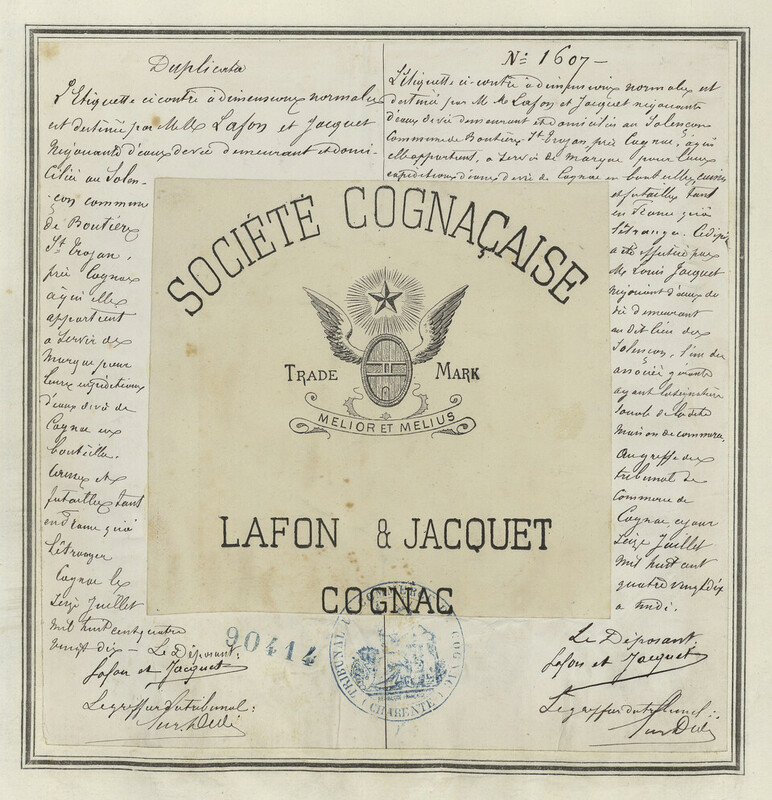 Duplicata
L'Etiquette ci contre à dimensions normales
et destinée par MM Lafon et Jacquet
négociants d'eaux de vie demeurant et domi-
ciliés au Solen-
çon commune
de Boutiers
St Trojan,
près Cognac
à qui elle
appartient
a servir de
Marque pour
leurs expéditions
d'eaux de vie de
Cognac en
bouteilles,
caisses et
futailles tant
en France qu'à
l'étranger
Cognac le
Seize Juillet
mil huit cent quatre
vingt dix – Le Déposant:
Lafon et Jacquet
Le greffier du tribunal:
N° 1607 –
L'étiquette ci-contre à dimensions normales et
destinée par M. M. Lafon et Jacquet négociants
d'eaux de vie demeurant et domiciliés au Solençon
Commune de Boutiers St Trojan près Cognac, à qui
elle appartient, a servir de marque pour leurs
expéditions d'eaux de vie de Cognac en bouteilles, caisses
et futailles tant
en France qu'à
l'étranger. Ce dépôt
a été effectué par
Mr Louis Jacquet
négociant d'eaux de
vie demeurant
au dit lieu de
Solençon, l'un des
associés gérants
ayant la signature
sociale de la dite
maison de commerce,
au greffe du
tribunal de
Commerce de
Cognac, ce jour
Seize Juillet
mil huit cent
quatre vingt dix
a midi.
Le Déposant:
Lafon et Jacquet
Le greffier du tribunal:
SOCIÉTÉ COGNAÇAISE
TRADE MARK
MELIOR ET MELIUS
LAFON & JACQUET
COGNAC
90414
TRIBUNAL DE COMMERCE DE COGNAC
CHARENTE